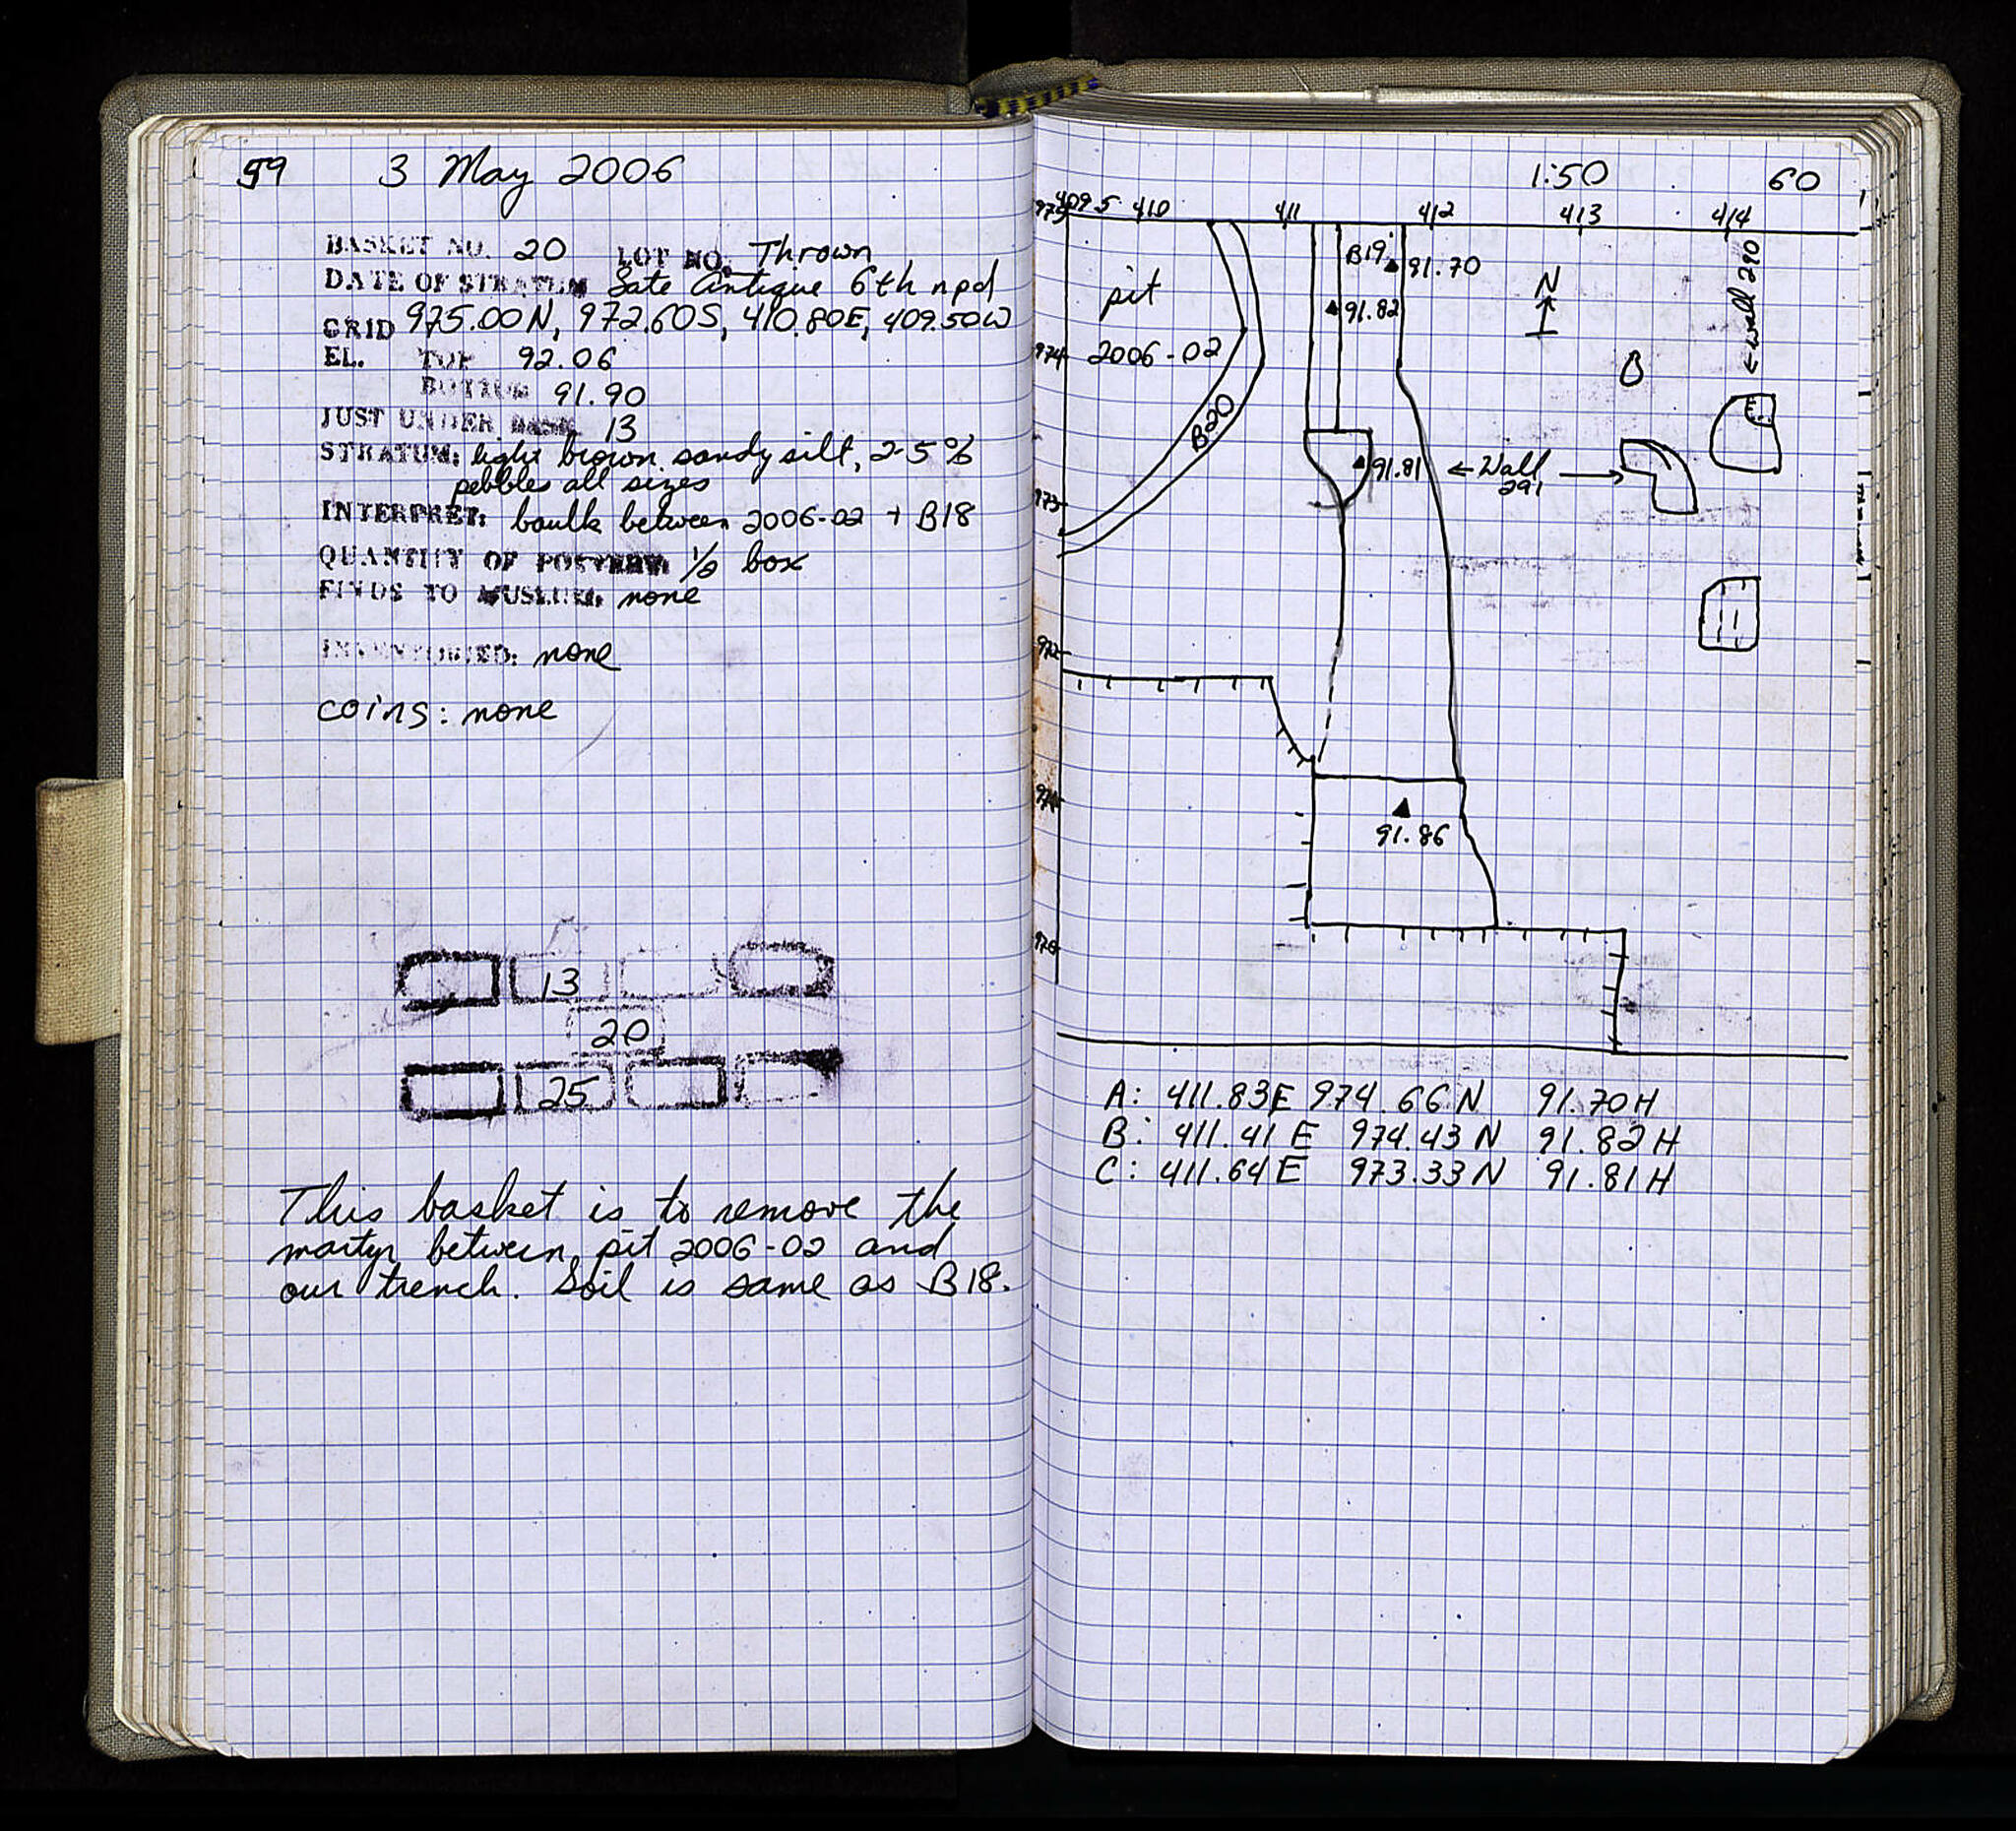 59 3 May 2006
BASKET NO. 20 LOT NO. Thrown
DATE OF STRATUM Late Antique 6th npd
GRID 975.00N, 972.60S, 410.80E, 409.50W
EL. TOP 92.06
BOTTOM 91.90
JUST UNDER BASK. 13
STRATUM: light brown sandy silt, 2-5%
pebbles all sizes
INTERPRET: baulk between 2006-02 + B18
QUANTITY OF POTTERY: box
FINDS TO MUSEUM: none
INVENTORIED: none
coins: none
13
20
25
This basket is to remove the
martyr between pit 2006-02 and
our trench. Soil is same as B18.
1:50 60
409.5 410 411 412 413 414
975
974
973
972
971
970
pit
2006-02
B20
B19
91.70
91.82
91.81
N
← wall 290
← Wall →
291
91.86
A: 411.83E 974.66N 91.70H
B: 411.41E 974.43N 91.82H
C: 411.64E 973.33N 91.81H